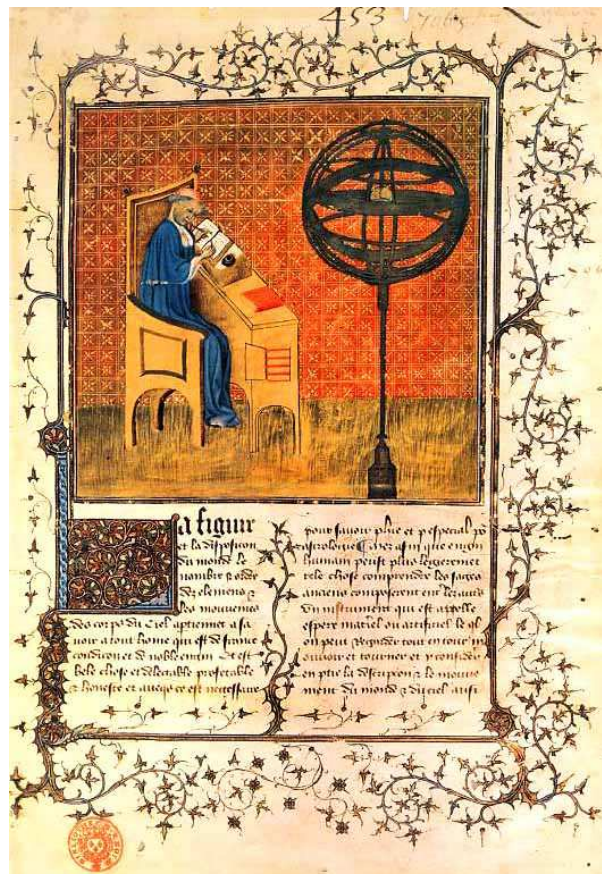 453
7065
La figure
et la disposicion
du monde le
nombre & ordre
des elemens &
les mouvemens
des corps du ciel aptiennet a sa
voir a tout home qui est de france
condicion et de noble engin Et est
bele chose et delectable profetable
& honeste et avecqs ce est necessaire
pour savoir phie et p especial po
astrologie Et afin que engin
humain peust plus legierement
tele chose comprendre les sages
anciens composerent
un instrument qui est appelle
espere materiel ou artificiel le ql
on peut Regarder tout entour
mouvoir et tourner et y considerer
en ptie la descripcion & le mouve
ment du monde & du ciel aussi